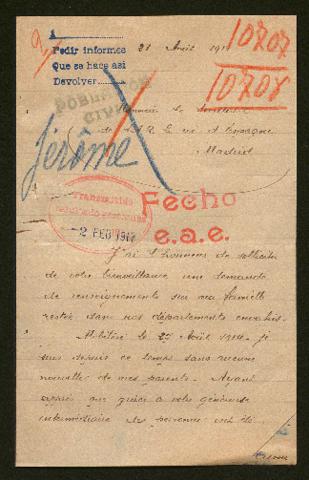 10707
Pedir informes
Que se hace así
Devolver
10708
POBLACION
CIVIL
Monsieur le
de S. M. le roi d'Espagne
Madrid
Jérôme
Fecho
e.a.e.
2 FEB 1917
J'ai l'honneur de solliciter
de votre bienveillance une demande
de renseignements sur ma famille
restée dans nos départements envahis.
Mobilisé le Août 1914 je
suis depuis ce temps sans aucune
nouvelle de mes parents. Ayant
appris que grâce à votre généreuse
intermédiaire des personnes ont été